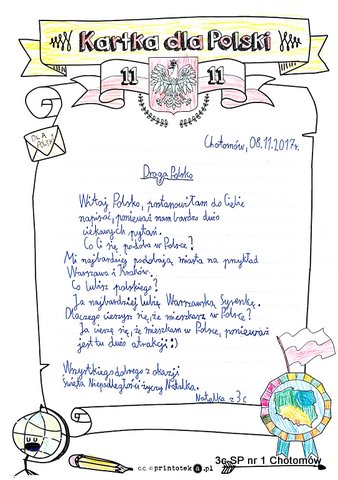 Kartka dla Polski
11 11
DLA POLSKI
Chotomów, 08.11.2017r.
Droga Polsko
Witaj Polsko, postanowiłam do Ciebie
napisać, ponieważ mam bardzo dużo
ciekawych pytań.
Co Ci się podoba w Polsce?
Mi najbardziej podobają miasta na przykład
Warszawa i Kraków.
Co lubisz polskiego?
Ja najbardziej lubię Warszawską Syrenkę.
Dlaczego cieszysz się, że mieszkasz w Polsce?
Ja cieszę się, że mieszkam w Polsce, ponieważ
jest tu dużo atrakcji :)
Wszystkiego dobrego z okazji
Święta Niepodległości życzy Natalka.
Natalka z 3c
3c SP nr 1 Chotomów
c.c. © printoteka.pl